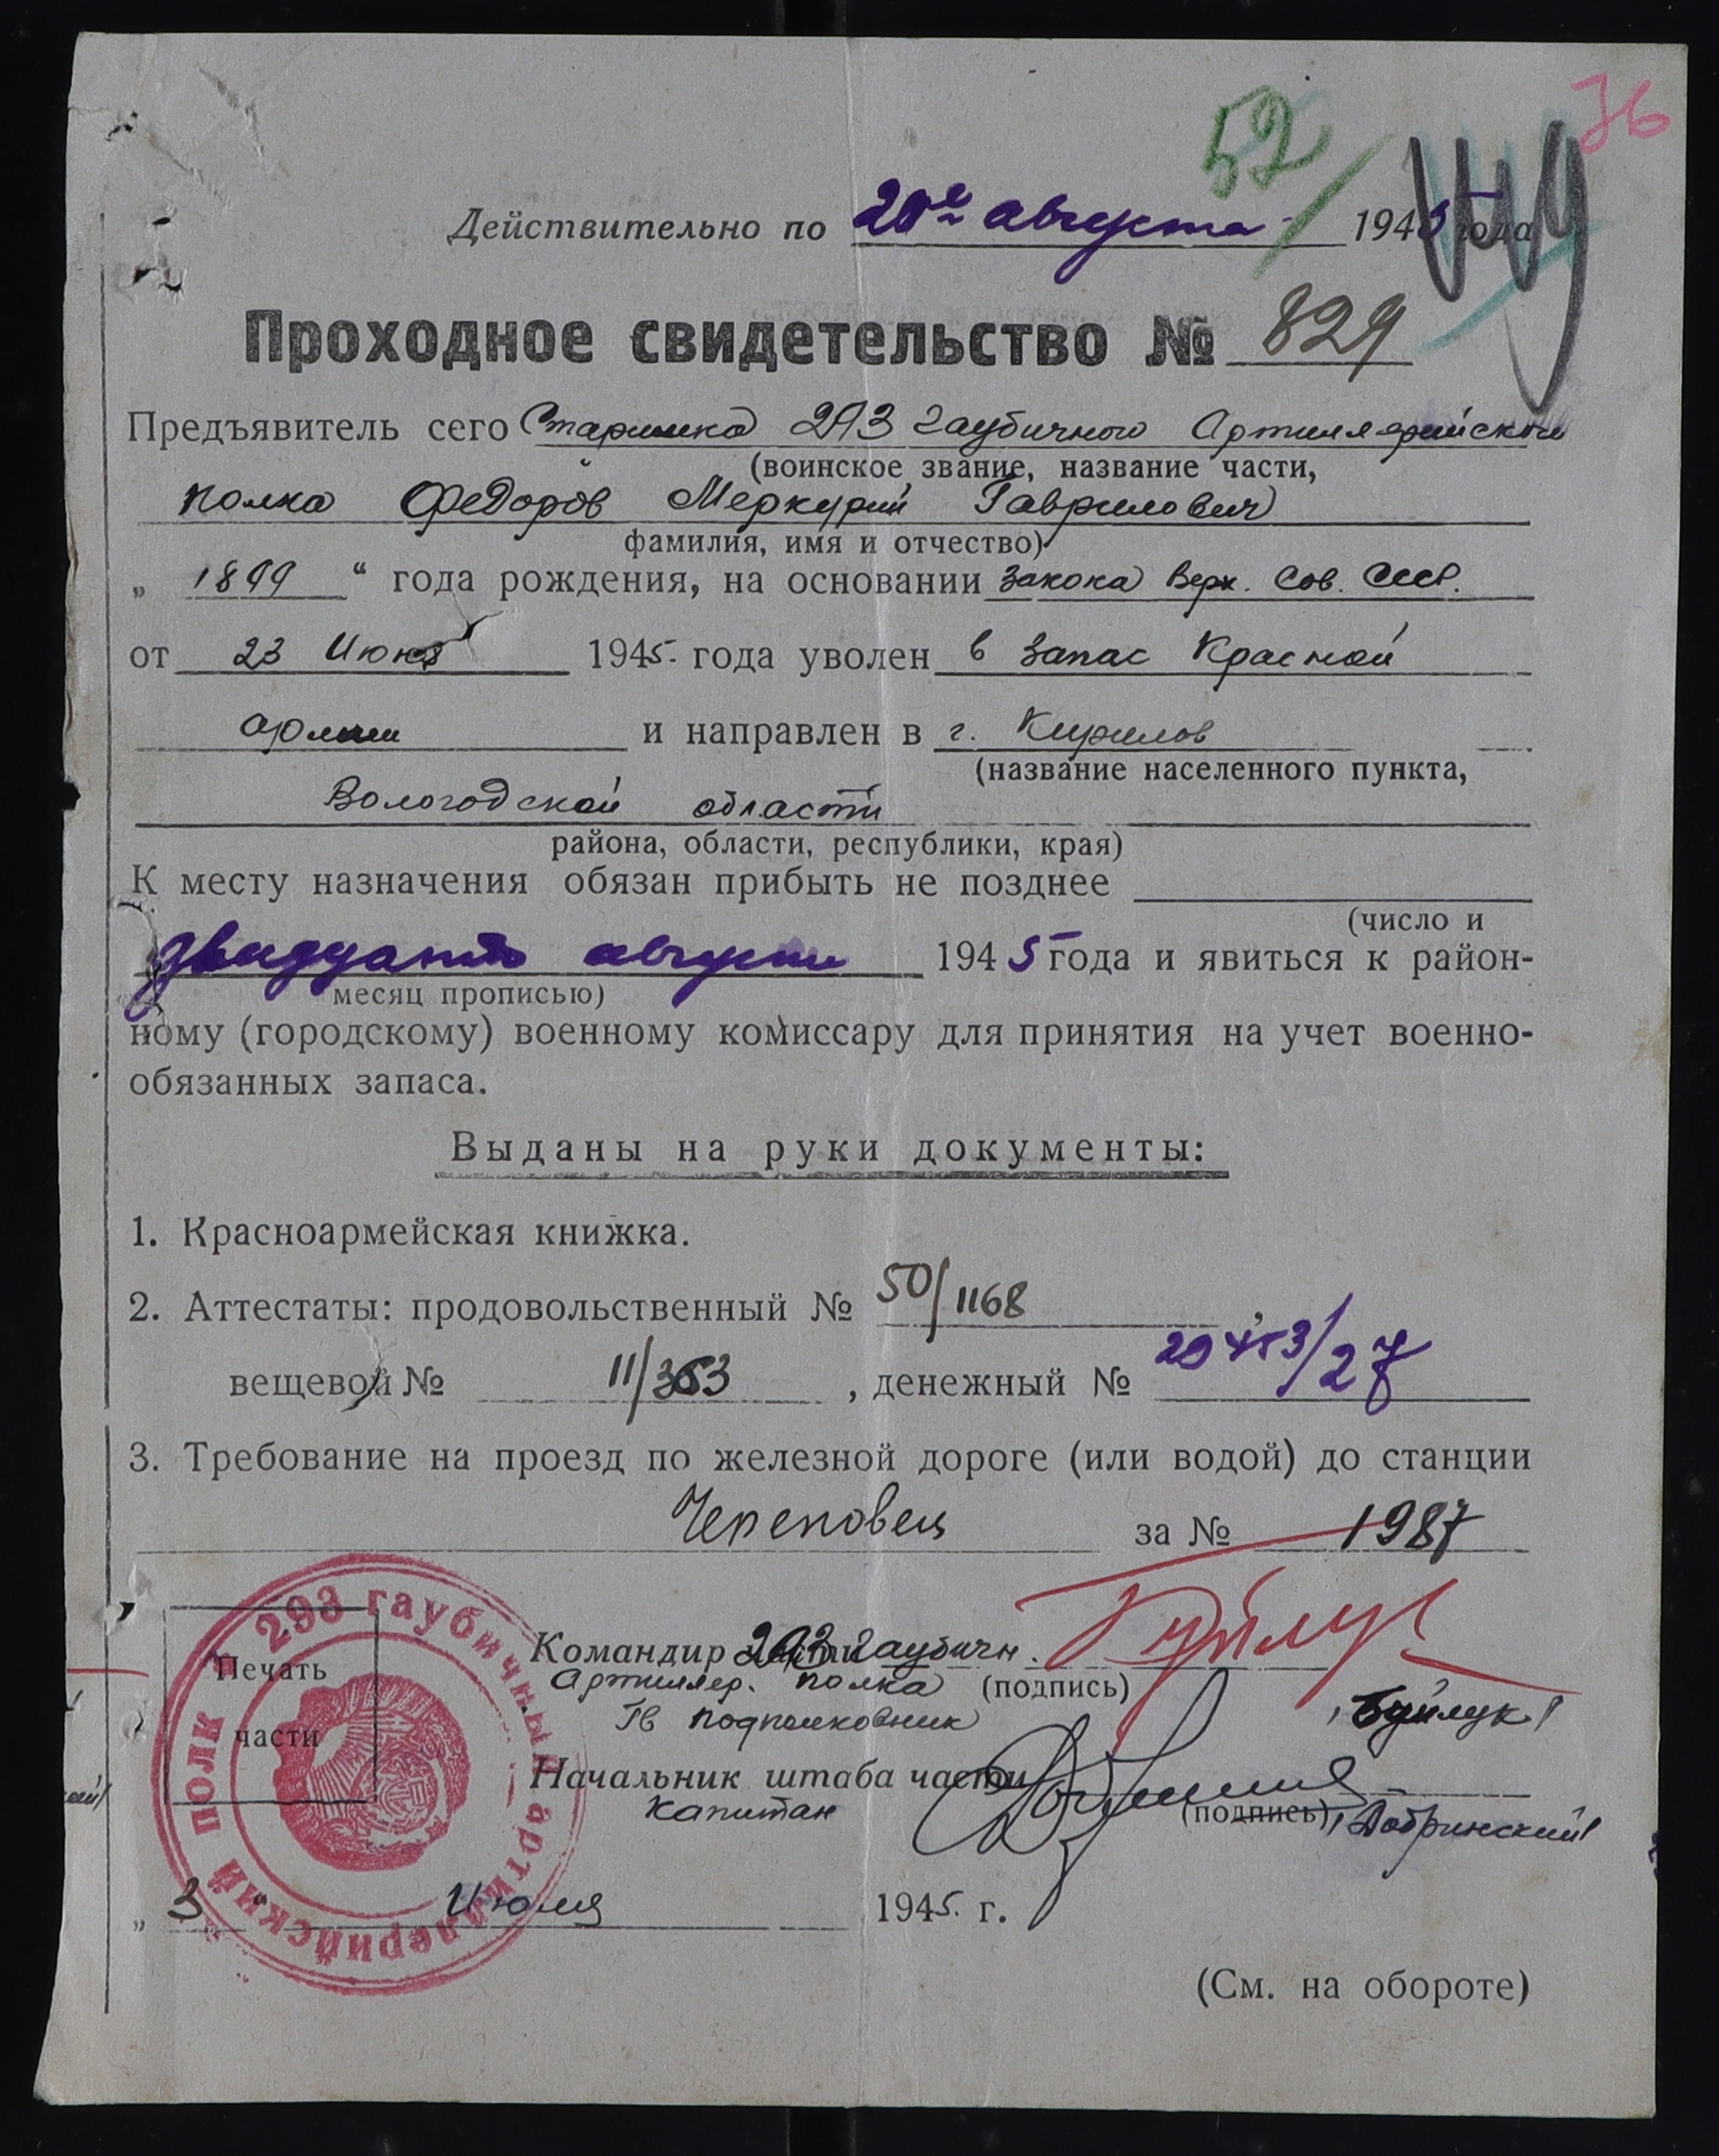 76
52
Действительно по 20е августа 1945 года
Проходное свидетельство № 829
Предъявитель сего Старшина 293 Гаубичного Артиллерийского
(воинское звание, название части,
полка Федоров Меркурий Гаврилович
фамилия, имя и отчество)
„ 1899 “ года рождения, на основании Закона Верх. Сов. СССР.
от 23 Июня 1945. года уволен в запас Красной
Армии и направлен в г. Кирилов
(название населенного пункта,
Вологодской области
района, области, республики, края)
К месту назначения обязан прибыть не позднее
(число и
двадцать августа 1945 года и явиться к район-
месяц прописью)
ному (городскому) военному комиссару для принятия на учет военно-
обязанных запаса.
Выданы на руки документы:
1. Красноармейская книжка.
2. Аттестаты: продовольственный № 50/1168
вещевой № 11/353, денежный № 20453/27
3. Требование на проезд по железной дороге (или водой) до станции
Череповец за № 1987
293 гаубичный артиллерийский полк
Печать
части
Командир 293 Гаубичн.
Артиллер. полка (подпись)
Гв подполковник /Буйлук/
Начальник штаба части
Капитан (подпись) /Добринский/
„ 3 “ Июля 1945. г.
(См. на обороте)